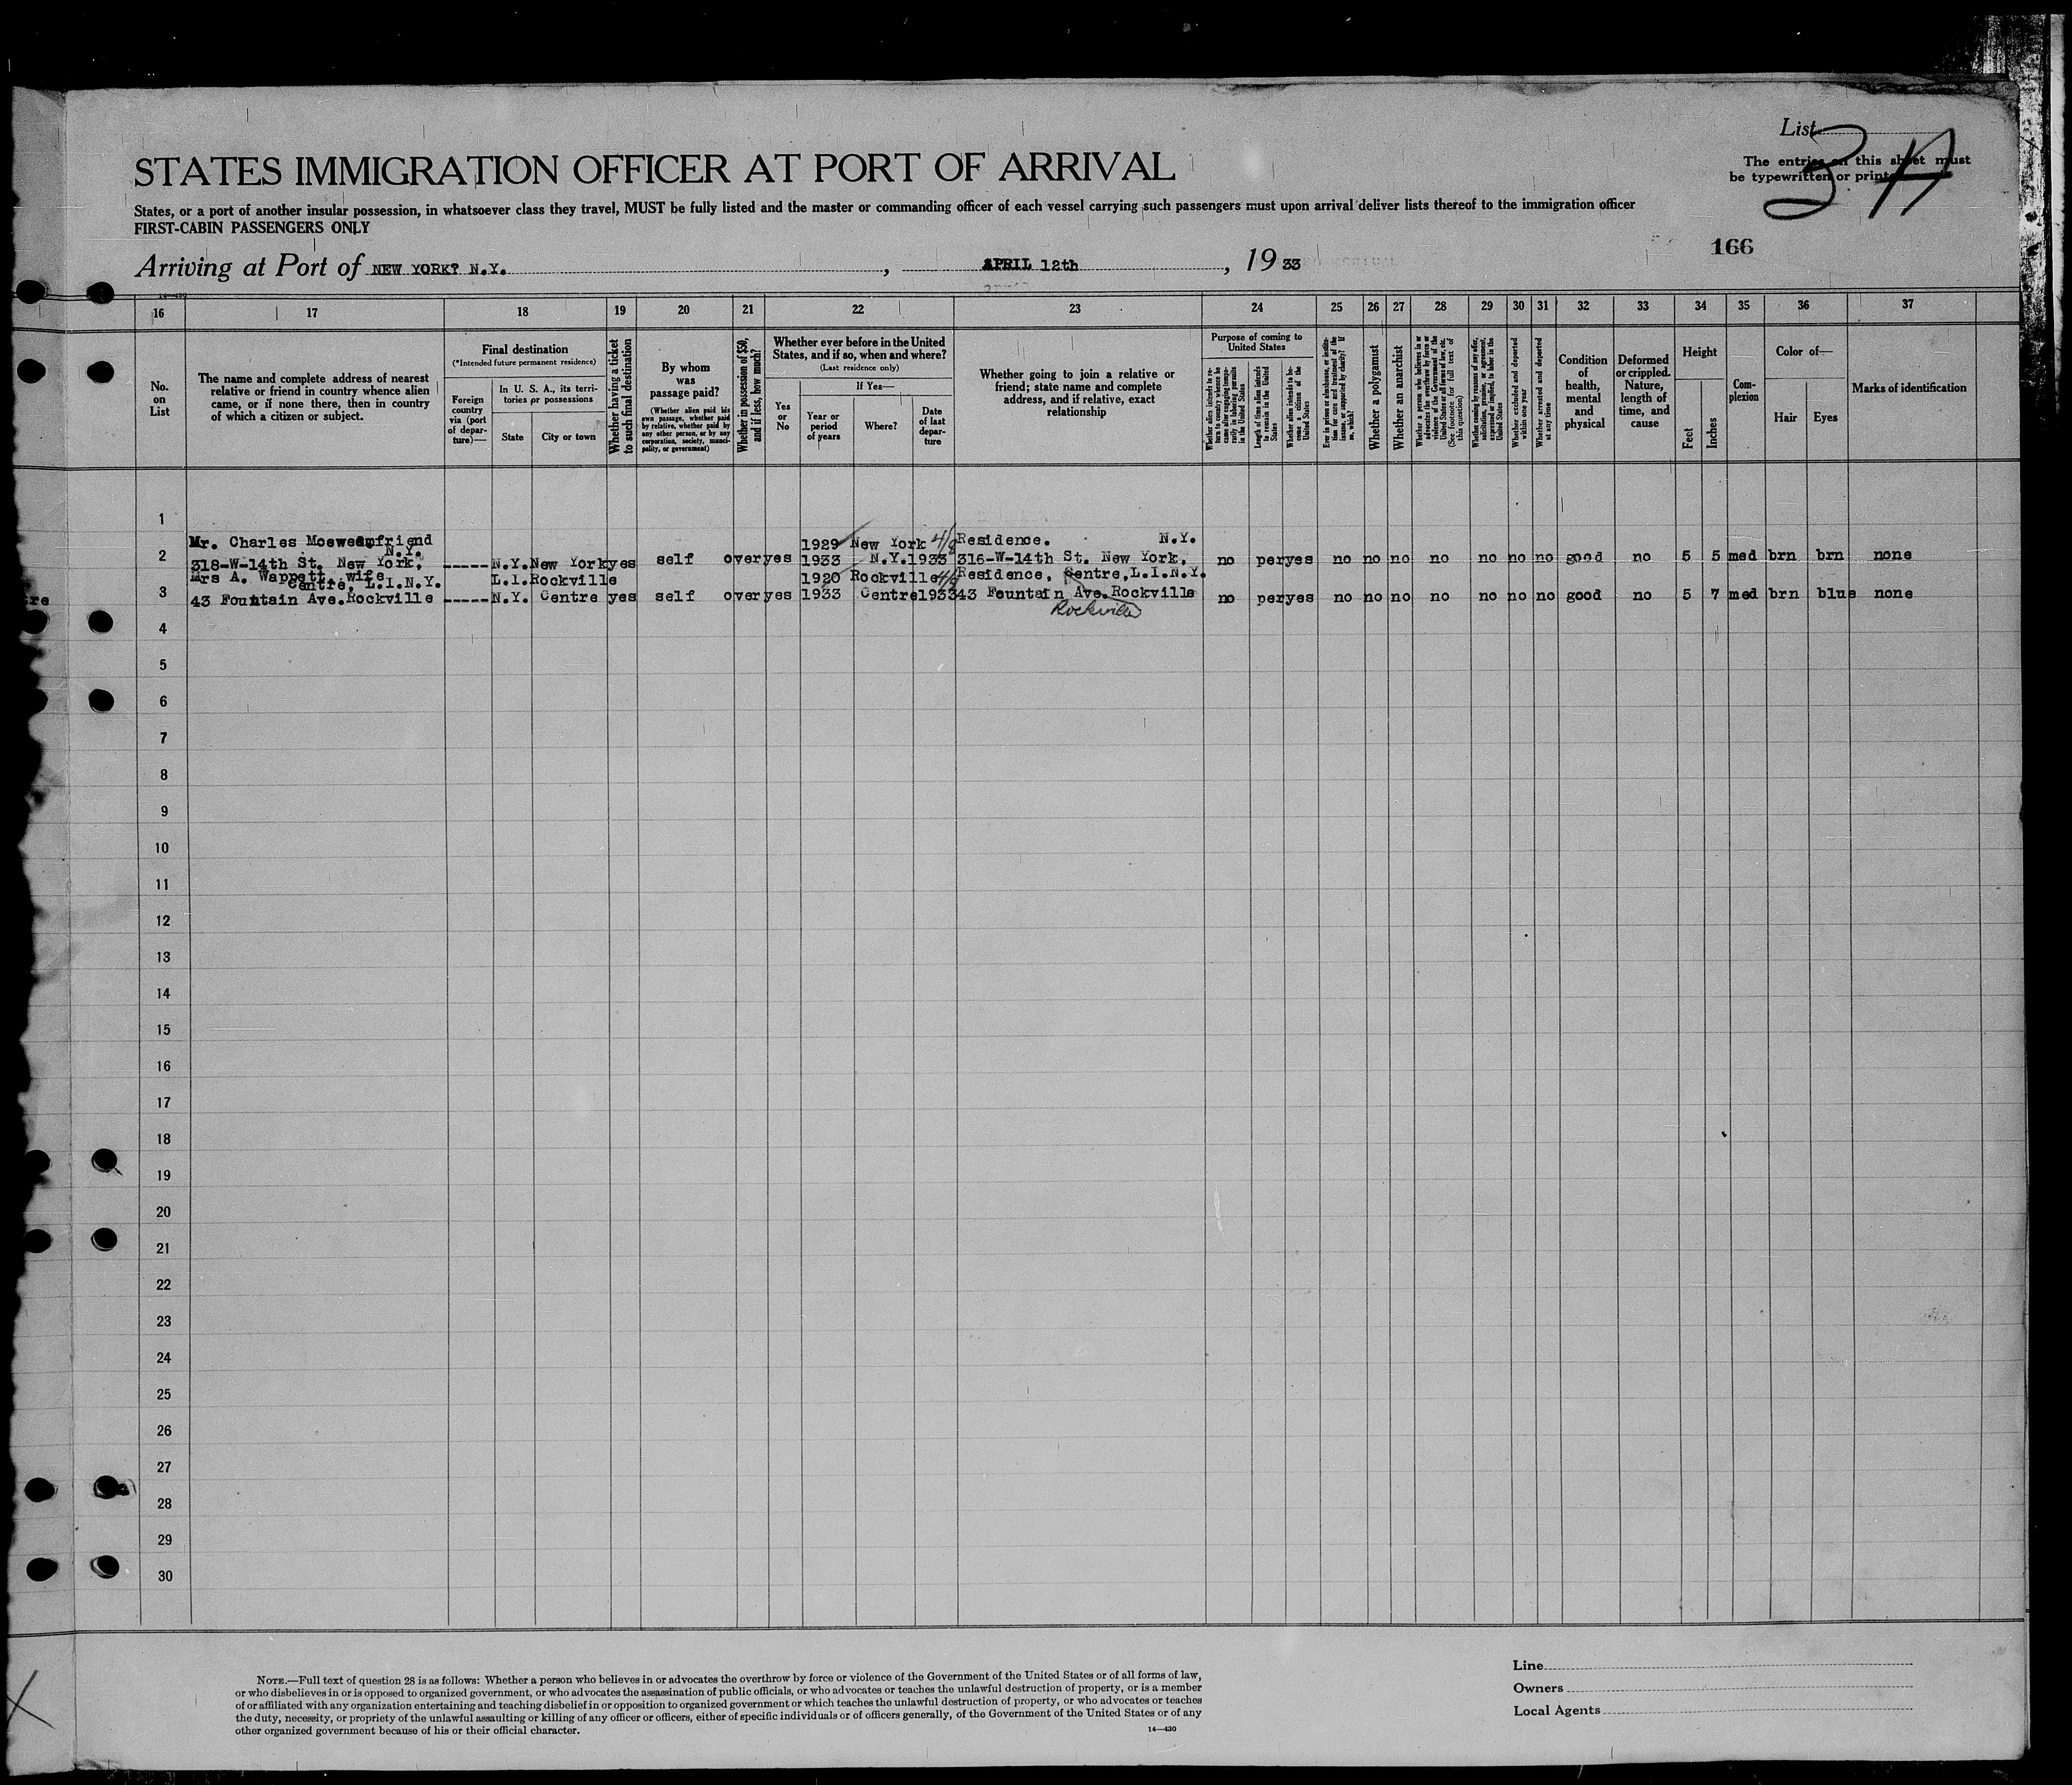 List
3 A
STATES IMMIGRATION OFFICER AT PORT OF ARRIVAL
The entries on this sheet must
be typewritten or printed
States, or a port of another insular possession, in whatsoever class they travel, MUST be fully listed and the master or commanding officer of each vessel carrying such passengers must upon arrival deliver lists thereof to the immigration officer
FIRST-CABIN PASSENGERS ONLY
166
Arriving at Port of NEW YORK? N.Y. , APRIL 12th , 19 33
14-430
16 17 18 19 20 21 22 23 24 25 26 27 28 29 30 31 32 33 34 35 36 37
No. on List
The name and complete address of nearest relative or friend in country whence alien came, or if none there, then in country of which a citizen or subject.
Final destination
(*Intended future permanent residence)
Foreign country via (port of departure)—
In U. S. A., its territories or possessions
State
City or town
Whether having a ticket to such final destination
By whom was passage paid?
(Whether alien paid his own passage, whether paid by relative, whether paid by any other person, or by any corporation, society, municipality, or government)
Whether in possession of $50, and if less, how much?
Whether ever before in the United States, and if so, when and where?
(Last residence only)
Yes or No
If Yes—
Year or period of years
Where?
Date of last departure
Whether going to join a relative or friend; state name and complete address, and if relative, exact relationship
Purpose of coming to United States
Whether alien intends to return to country whence he came after engaging temporarily in laboring pursuits in the United States
Length of time alien intends to remain in the United States
Whether alien intends to become a citizen of the United States
Ever in prison or almshouse, or institution for care and treatment of the insane, or supported by charity? If so, which?
Whether a polygamist
Whether an anarchist
Whether a person who believes in or advocates the overthrow by force or violence of the Government of the United States or all forms of law, etc. (See footnote for full text of this question)
Whether coming by reasons of any offer, solicitation, promise, or agreement, expressed or implied, to labor in the United States
Whether excluded and deported within one year
Whether arrested and deported at any time
Condition of health, mental and physical
Deformed or crippled. Nature, length of time, and cause
Height
Feet
Inches
Complexion
Color of—
Hair
Eyes
Marks of identification
1
Mr. Charles friend 1929 New York 4/8 Residence. N.Y.
2 318-W-14th St. New York, N.Y. -----N.Y. New York yes self over yes 1933 N.Y. 1933 316-W-14th St. New York, no per yes no no no no no no no good no 5 5 med brn brn none
Mrs A. Wappett, wife Centre, L.I.N.Y. L.I. Rockville 1920 Rockville 4/8 Residence, Centre, L.I.N.Y.
3 43 Fountain Ave. Rockville -----N.Y. Centre yes self over yes 1933 Centre 1933 43 Fountain Ave. Rockville no per yes no no no no no no no good no 5 7 med brn blue none
Rockville
4
5
6
7
8
9
10
11
12
13
14
15
16
17
18
19
20
21
22
23
24
25
26
27
28
29
30
NOTE.—Full text of question 28 is as follows: Whether a person who believes in or advocates the overthrow by force or violence of the Government of the United States or of all forms of law,
or who disbelieves in or is opposed to organized government, or who advocates the assassination of public officials, or who advocates or teaches the unlawful destruction of property, or is a member
of or affiliated with any organization entertaining and teaching disbelief in or opposition to organized government or which teaches the unlawful destruction of property, or who advocates or teaches
the duty, necessity, or propriety of the unlawful assaulting or killing of any officer or officers, either of specific individuals or of officers generally, of the Government of the United States or of any
other organized government because of his or their official character.
14—430
Line
Owners
Local Agents